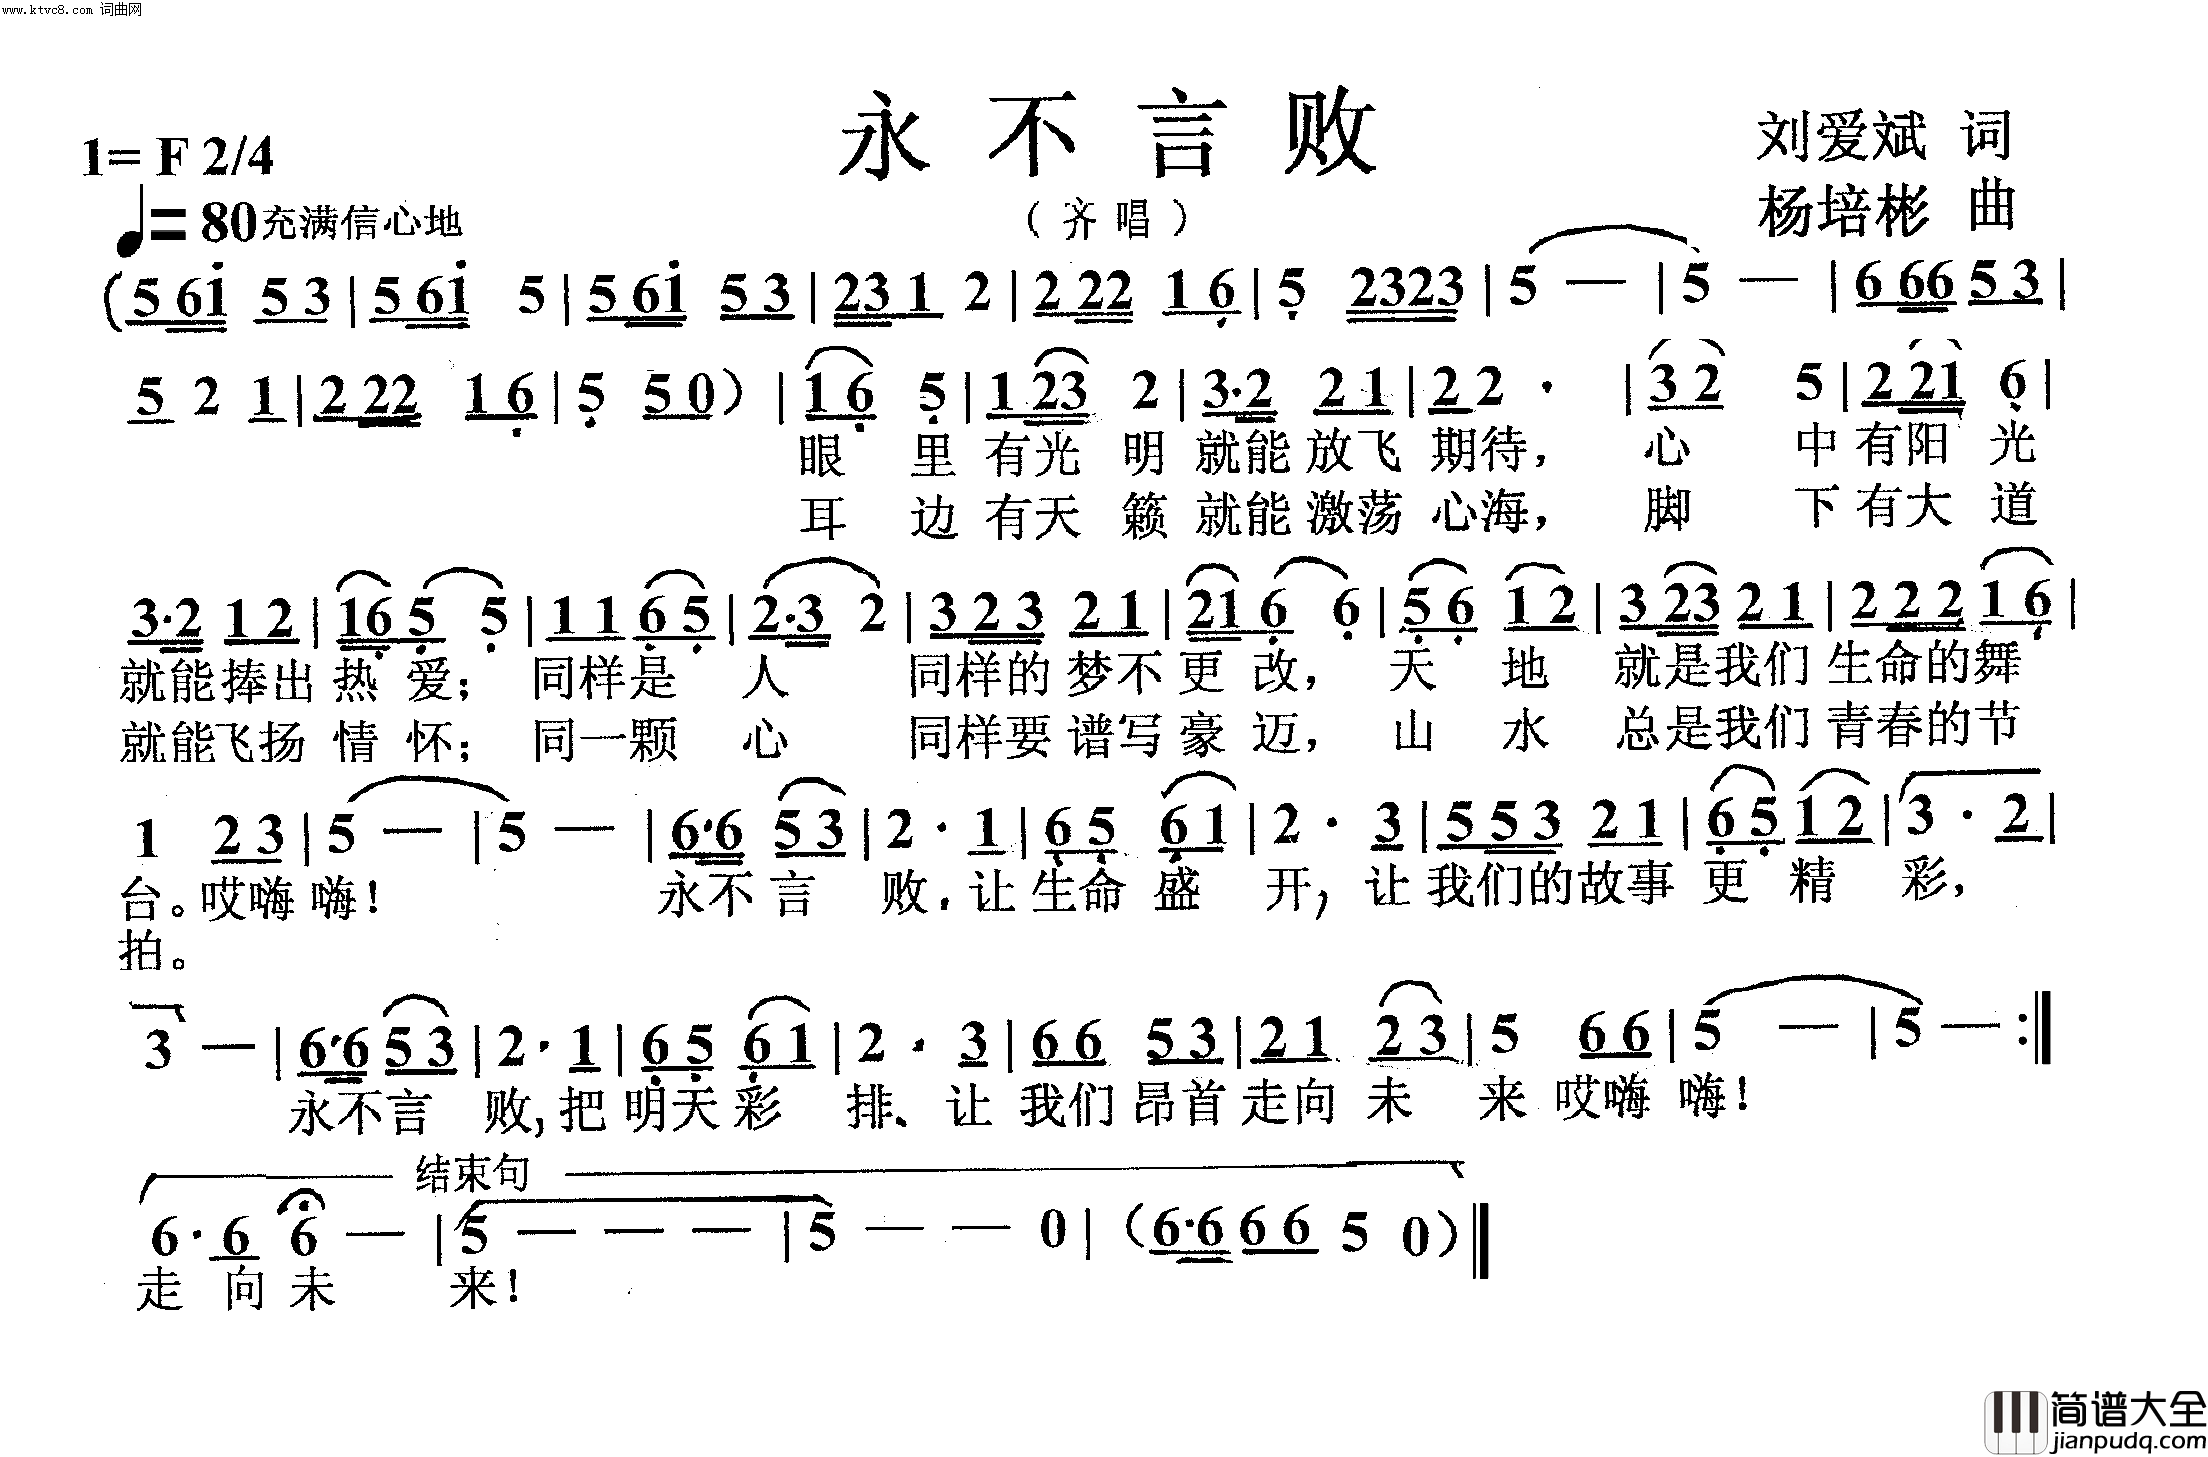 www.ktvc8.com 词曲网
永不言败
1= F 2/4
刘爱斌 词
♩= 80 充满信心地
（齐唱）
杨培彬 曲
(5 6i 5 3 | 5 6i 5 | 5 6i 5 3 | 23 1 2 | 2 22 1 6 | 5 2323 | 5 — | 5 — | 6 66 5 3 |
5 2 1 | 2 22 1 6 | 5 5 0) | 1 6 5 | 1 23 2 | 3·2 2 1 | 2 2 · | 3 2 5 | 2 21 6 |
眼 里 有光 明 就能 放飞 期待， 心 中 有阳 光
耳 边 有天 籁 就能 激荡 心海， 脚 下 有大 道
3·2 1 2 | 16 5 5 | 1 1 6 5 | 2·3 2 | 3 2 3 2 1 | 21 6 6 | 5 6 1 2 | 3 23 2 1 | 2 2 2 1 6 |
就能捧出 热 爱； 同样是 人 同样的 梦不 更 改， 天 地 就是我们 生命的舞
就能飞扬 情 怀； 同一颗 心 同样要 谱写 豪 迈， 山 水 总是我们 青春的节
1 2 3 | 5 — | 5 — | 6·6 5 3 | 2 · 1 | 6 5 6 1 | 2 · 3 | 5 5 3 2 1 | 6 5 1 2 | 3 · 2 |
台。哎嗨 嗨！ 永不 言 败，让 生命 盛 开，让 我们的故事 更 精 彩，
拍。
3 — | 6·6 5 3 | 2 · 1 | 6 5 6 1 | 2 · 3 | 6 6 5 3 | 2 1 2 3 | 5 6 6 | 5 — | 5 — :‖
永不言 败，把 明天彩 排、让 我们 昂首 走向 未 来 哎嗨 嗨！
结束句
6· 6 6 — | 5 — — — | 5 — — 0 | (6·6 6 6 5 0) ‖
走 向 未 来！
简谱大全
jianpudq.com